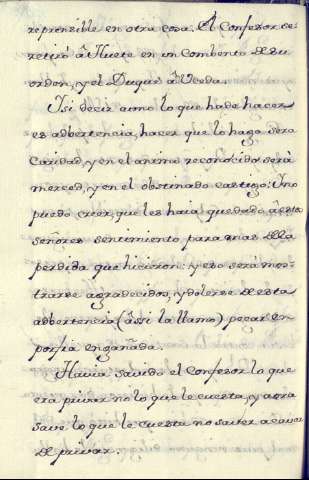 reprensible en otra cosa. El Confesor se
retiró à Huete en un Combento de su
orden, y el Duque à Uceda.
Y si decir aúno lo que hade hacer
es adbertencia, hacer que lo haga será
Caridad, y en el animo reconocido será
merced, y en el obstinado castigo: Yno
puedo creer, que les haia quedado à estos
señores sentimiento para mas de la
perdida que hicieron: y eso será mos-
trarse agradecidos, y dolerse de esta
adbertencia (àssi la llamo) pecar en
porfia engañada.
Havia savido el Confesor lo que
era privar no lo que le cuesta, y aora
save lo que le cuesta no saver acavar
de privar.